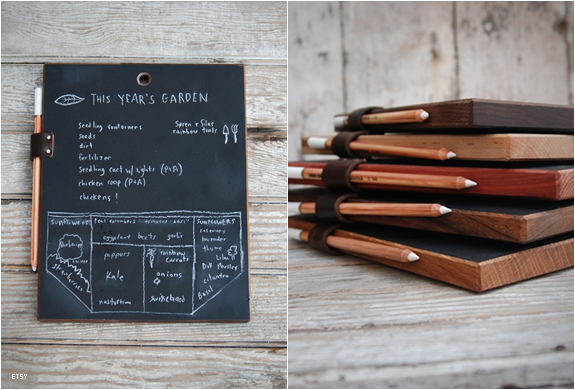 THIS YEAR'S GARDEN
Seedling containers
Seeds
dirt
fertilizer
Seedling cart w/ lights (P+A)
chicken coop (P+A)
chickens!
Soren + Silas
rainbow tools
SUNFLOWERS
eggplant beets garlic
peppers
Kale
nasturtium
rainbow
carrots
onions
SUNFLOWERS
rosemary
lavender
thyme
Dill Parsley
cilantro
Basil
ETSY